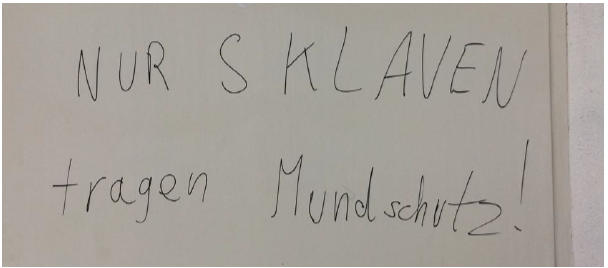 NUR SKLAVEN
tragen Mundschutz!